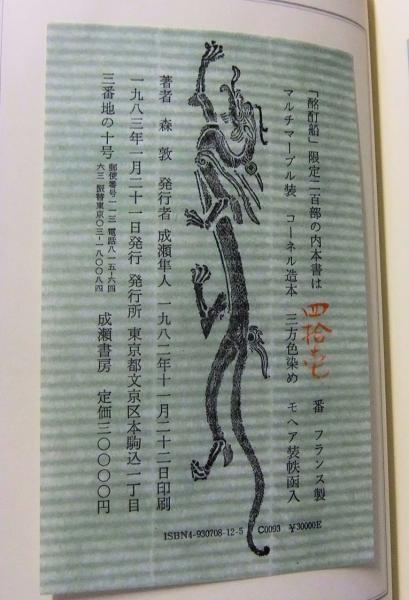 「酩酊船」限定二百部の内本書は 四拾 番 フランス製
マルチマーブル装 コーネル造本 三方色染め モヘア装帙函入
著者 森 敦 発行者 成瀬隼人 一九八二年十一月二十二日印刷
一九八三年一月二十一日発行 発行所 東京都文京区本駒込一丁目
三番地の十号 郵便番号一一三 電話八一五―六四
六三 振替東京〇三―一八〇〇八四 成瀬書房 定価三〇〇〇〇円
ISBN4-930708-12-5 C0093 ¥30000E